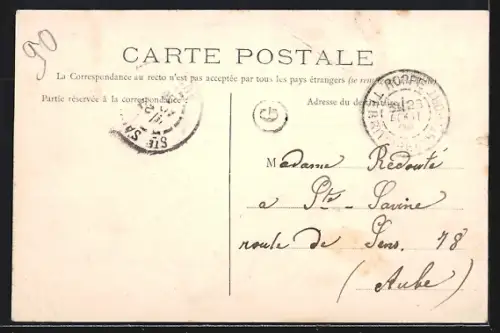 90
CARTE POSTALE
La Correspondance au recto n'est pas acceptée par tous les pays étrangers
Partie réservée à la correspondance
Adresse du
G
STE SA
Madame Redouté
a Ste-Savine
route de Sens. 78
(Aube)